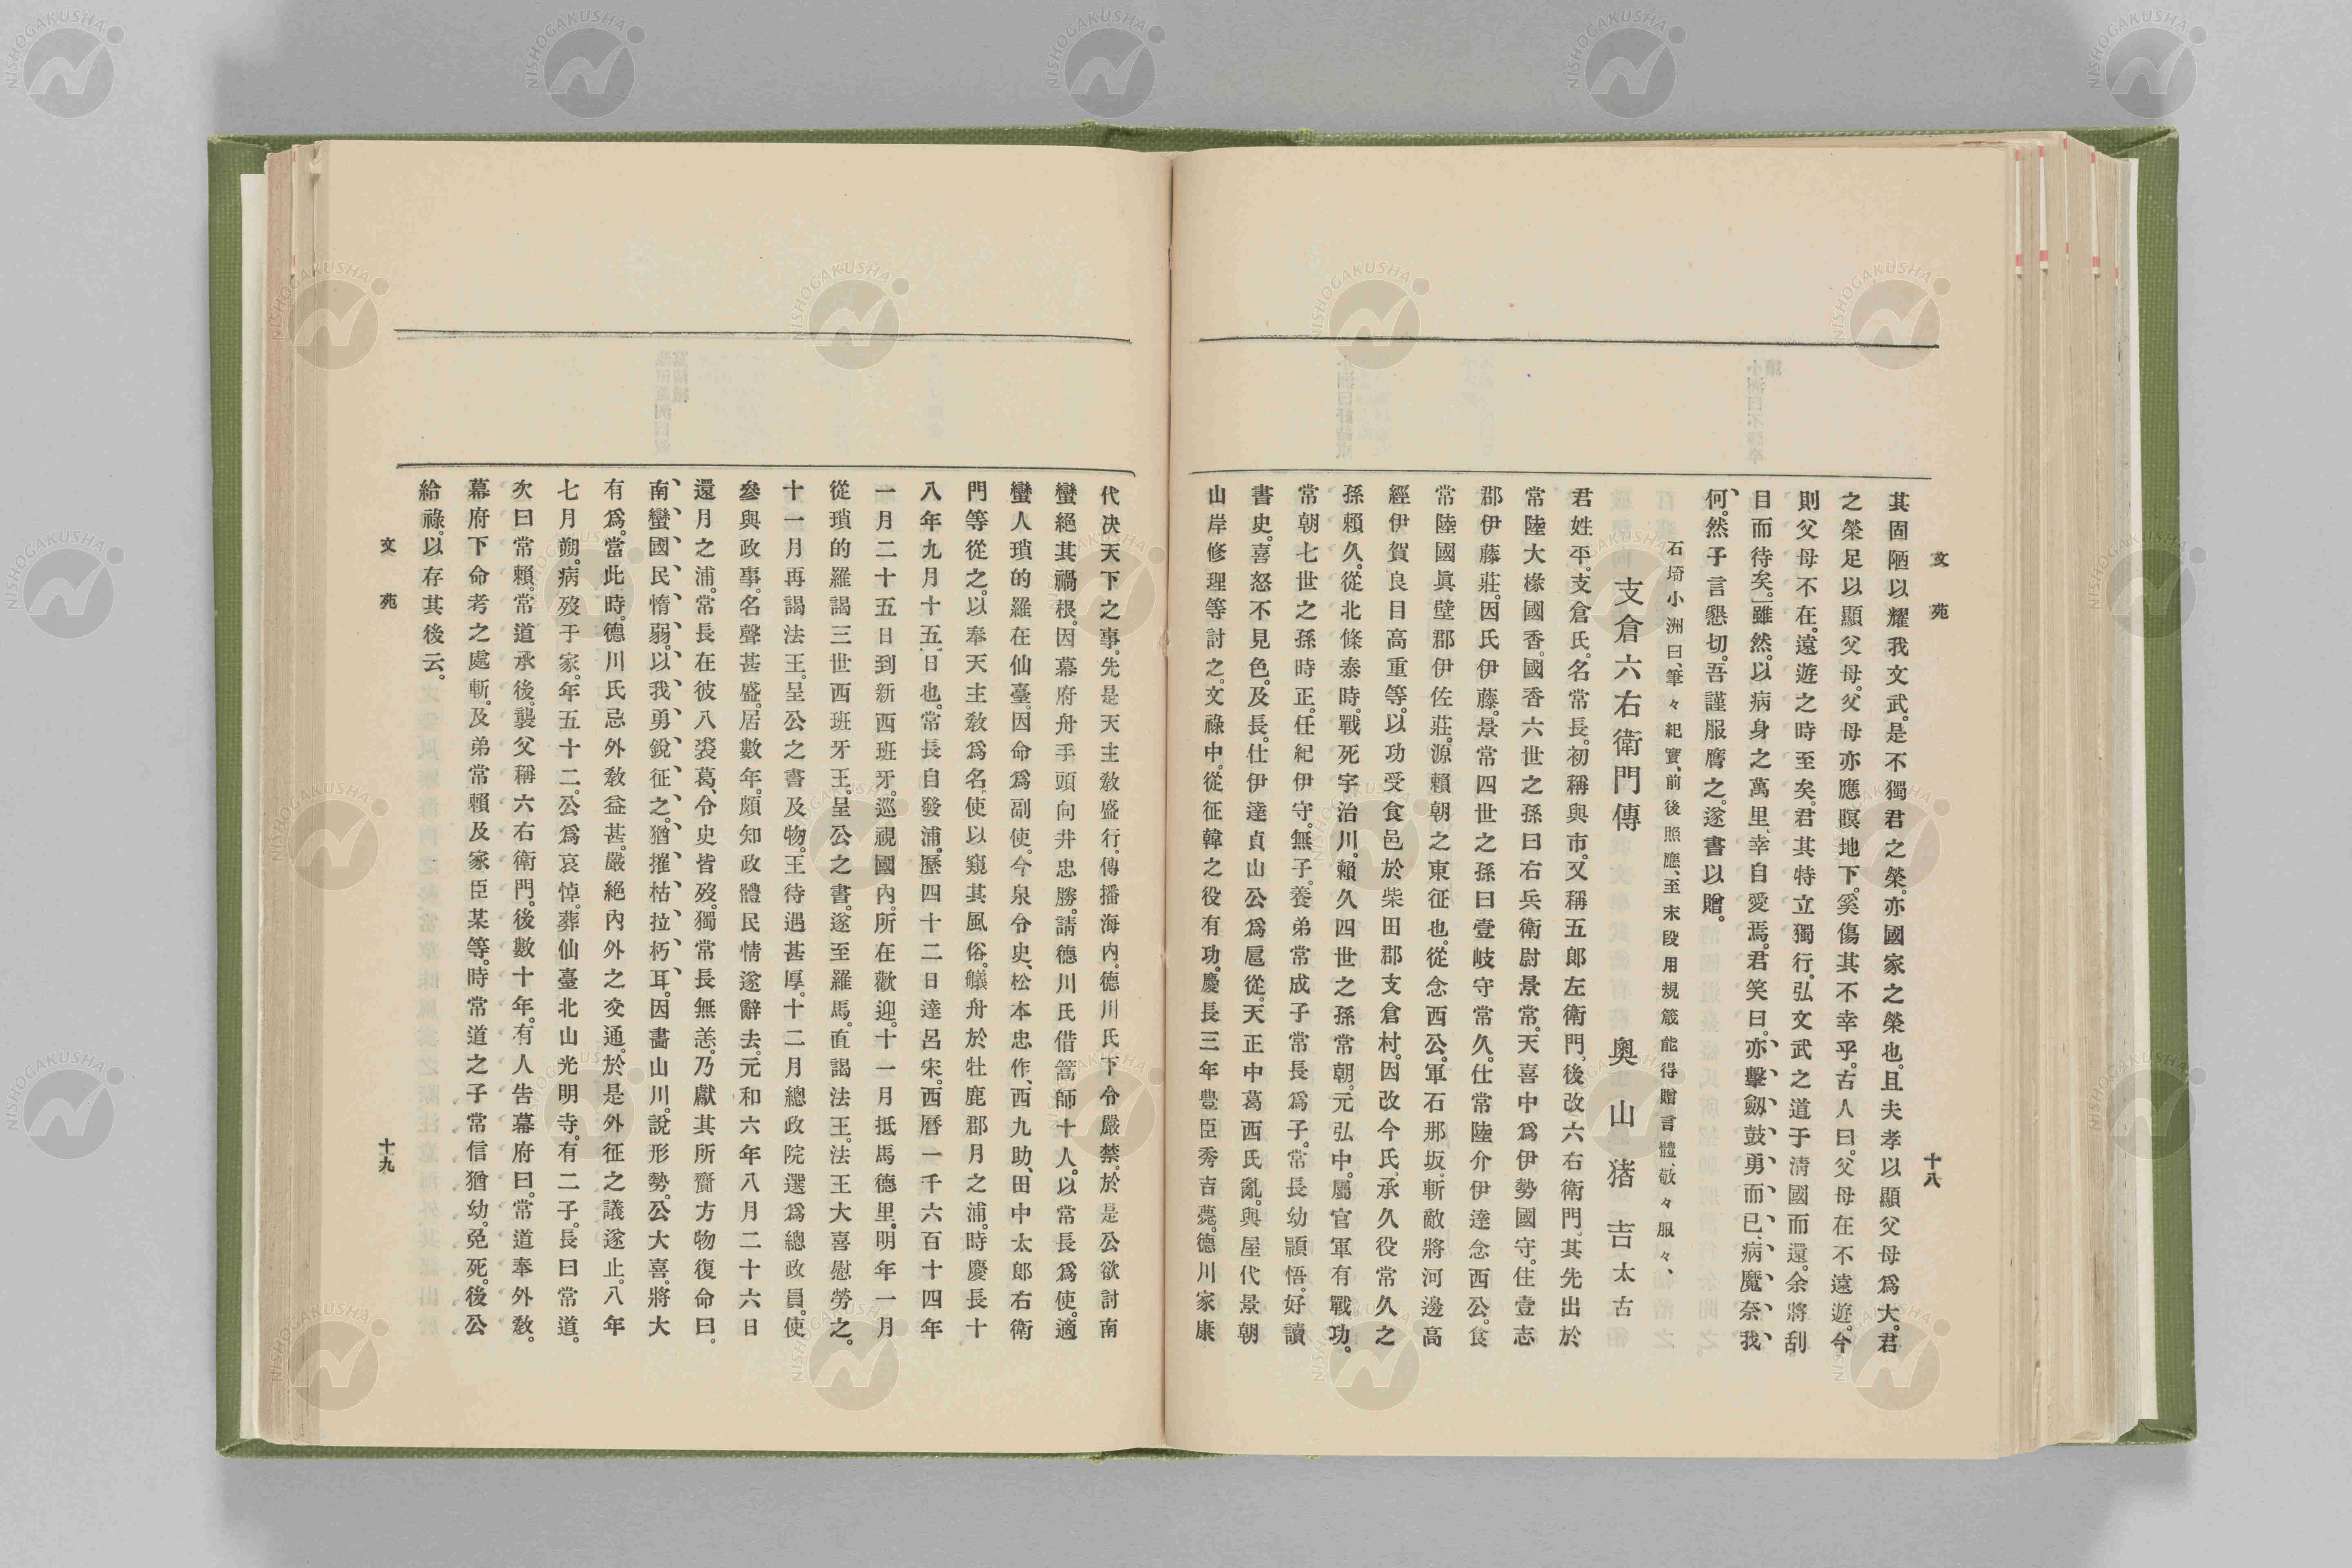 文苑
十八
其固陋以耀我文武。是不獨君之榮。亦國家之榮也。且夫孝以顯父母爲大。君
之榮足以顯父母。父母亦應瞑地下。奚傷其不幸乎。古人曰。父母在不遠遊。今
則父母不在。遠遊之時至矣。君其特立獨行。弘文武之道于淸國而還。余將刮
目而待矣。」雖然。以病身之萬里、幸自愛焉。君笑曰。亦擊劒鼓勇而已、病魔奈我
何。然子言懇切。吾謹服膺之。遂書以贈。
石埼小洲曰、筆々紀實、前後照應、至末段用規箴能得贈言體、敬々服々、
支倉六右衛門傳 奧山猪吉太古
君姓平。支倉氏。名常長。初稱與市。又稱五郎左衛門、後改六右衛門。其先出於
常陸大椽國香。國香六世之孫曰右兵衛尉景常。天喜中爲伊勢國守。住壹志
郡伊藤莊。因氏伊藤。景常四世之孫曰壹岐守常久。仕常陸介伊達念西公。食
常陸國眞壁郡伊佐莊。源賴朝之東征也。從念西公。軍石那坂、斬敵將河邊高
經伊賀良目高重等。以功受食邑於柴田郡支倉村。因改今氏、承久役常久之
孫賴久。從北條泰時。戰死宇治川。賴久四世之孫常朝。元弘中。屬官軍有戰功。
常朝七世之孫時正。任紀伊守。無子。養弟常成子常長爲子。常長幼頴悟。好讀
書史。喜怒不見色。及長。仕伊達貞山公爲扈從。天正中葛西氏亂。與屋代景朝
山岸修理等討之。文祿中。從征韓之役有功。慶長三年豊臣秀吉薨。德川家康
代决天下之事。先是天主敎盛行。傳播海內。德川氏下令嚴禁。於是公欲討南
蠻絕其禍根。因幕府舟手頭向井忠勝。請德川氏借篙師十人。以常長爲使。適
蠻人瑣的羅在仙臺。因命爲副使。今泉令史、松本忠作、西九助、田中太郎右衛
門等從之。以奉天主敎爲名。使以窺其風俗。艤舟於牡鹿郡月之浦。時慶長十
八年九月十五日也。常長自發浦。歷四十二日達呂宋。西曆一千六百十四年
一月二十五日到新西班牙。巡視國內。所在歡迎。十一月抵馬德里。明年一月
從瑣的羅謁三世西班牙王。呈公之書。遂至羅馬。直謁法王。法王大喜慰勞之。
十一月再謁法王。呈公之書及物。王待遇甚厚。十二月總政院選爲總政員。使
參與政事。名聲甚盛。居數年。頗知政體民情遂辭去。元和六年八月二十六日
還月之浦。常長在彼八裘葛、令史皆歿。獨常長無恙。乃獻其所齎方物復命曰。
南蠻國民惰弱。以我勇銳征之。猶摧枯拉朽耳。因畵山川。說形勢。公大喜。將大
有爲。當此時。德川氏忌外敎益甚。嚴絕內外之交通。於是外征之議遂止。八年
七月朔。病歿于家。年五十二。公爲哀悼。葬仙臺北山光明寺。有二子。長曰常道。
次曰常賴。常道承後。襲父稱六右衛門。後數十年。有人告幕府曰。常道奉外敎。
幕府下命考之處斬。及弟常賴及家臣某等。時常道之子常信猶幼。免死。後公
給祿。以存其後云。
文苑
十九